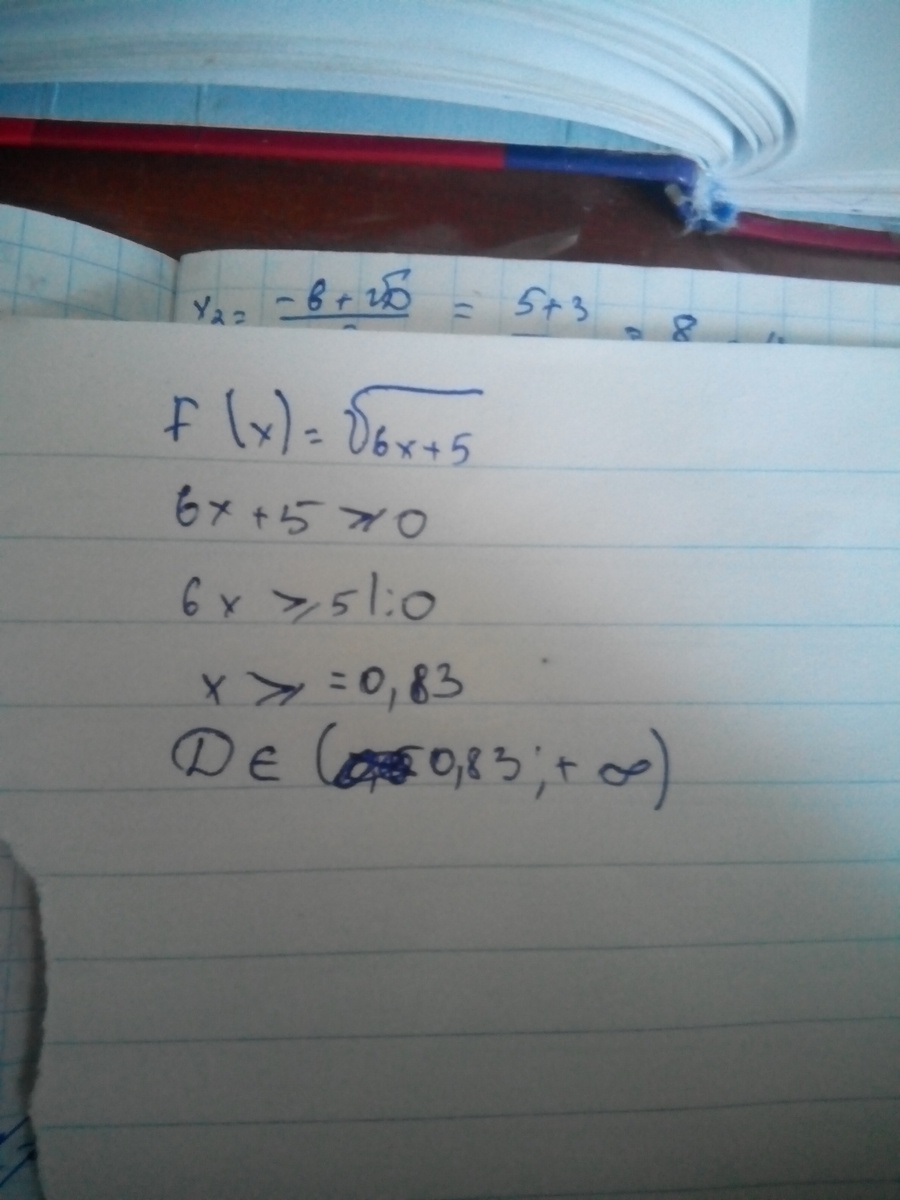 x₂ = -b + √D = 5+3 = 8
F (x) = √6x+5
6x + 5 ⩾ 0
6x ⩾ 5 |:0
x ⩾ = 0,83
D ∈ ( 0,83 ; + ∞)